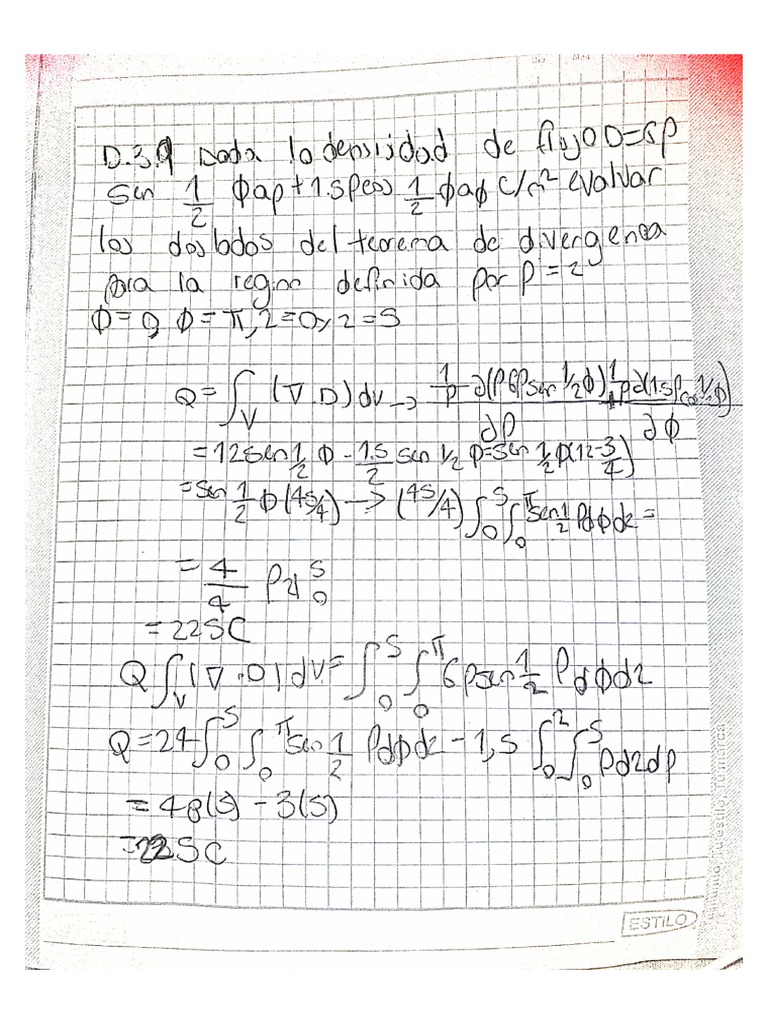 D.3.9 Dada la densidad de flujo D=6ρ
Sen 1/2 ϕaρ+1.5ρcos 1/2 ϕaϕ C/m² evaluar
los dos lados del teorema de divergencia
para la region definida por ρ=2
ϕ=0, ϕ=π, z=0, z=5
Q=∫_V (∇.D)dv → 1/ρ ∂(ρ6ρsen 1/2ϕ)/∂ρ 1/ρ∂(1.5ρcos 1/2ϕ)/∂ϕ
=12sen 1/2 ϕ - 1.5/2 sen 1/2 ϕ=sen 1/2 ϕ(12-3/4)
=Sen 1/2 ϕ(45/4) → (45/4)∫₀⁵∫₀^π sen 1/2 ρdϕdz=
= 4/4 ρz|₀⁵
=225C
Q∫_V(∇.D)dv=∫₀⁵∫₀^π 6ρsen 1/2 ρdϕdz
Q=24∫₀⁵∫₀^π sen 1/2 ρdϕdz-1,5∫₀²∫₀⁵ρdzdρ
=48(5)-3(5)
=225C
ESTILO